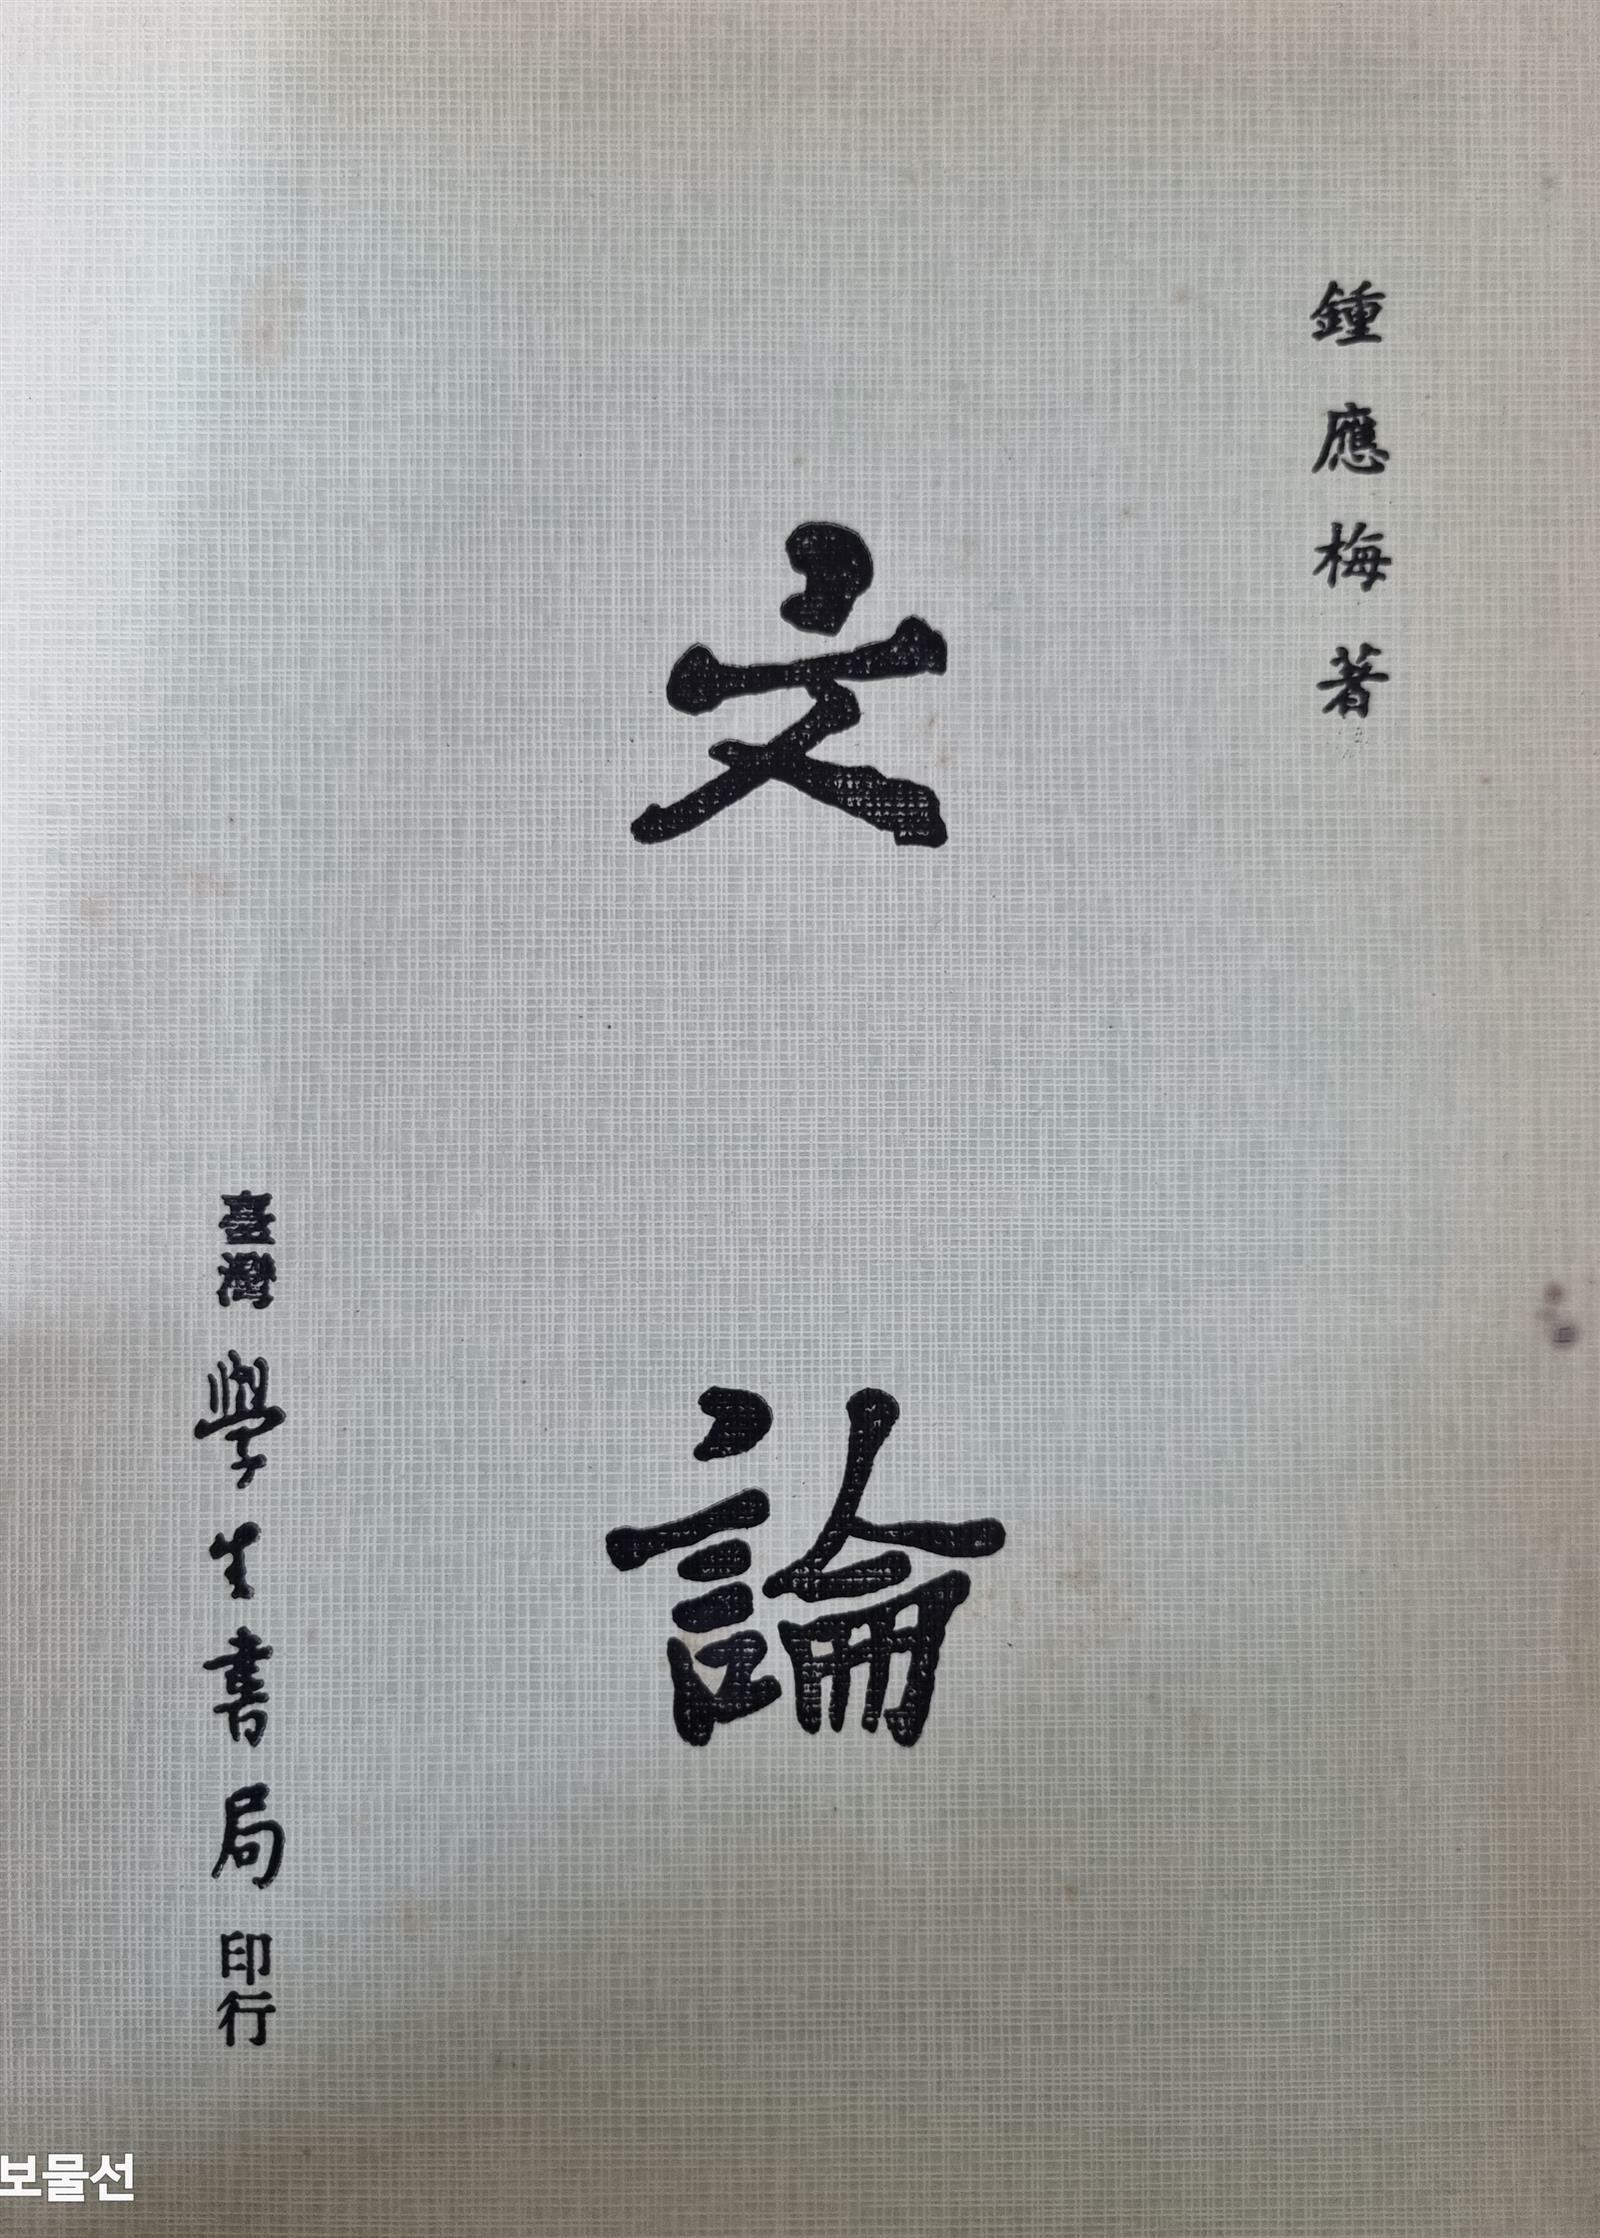 鍾應梅著
文論
臺灣學生書局印行
보물선